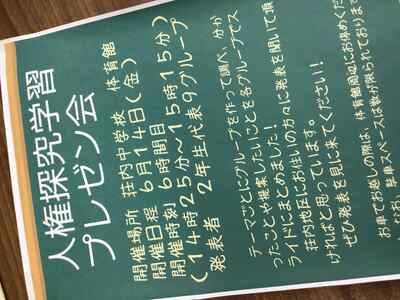 人権探究学習
プレゼン会
開催場所 荘内中学校 体育館
開催日程 6月14日(金)
開催時刻 6時間目
(14時25分～15時15分)
発表者 2年生代表9グループ
テーマごとにグループを作って調べ、分か
ったことや提案したいことを各グループでス
ライドにまとめました！
荘内地区にお住いの方々に発表を聞いて頂
ければと思っています。
ぜひ発表を見に来てください！
お車でお越しの際は、体育館周辺にお停めくだ
なお、駐車スペースは数が限られておりま